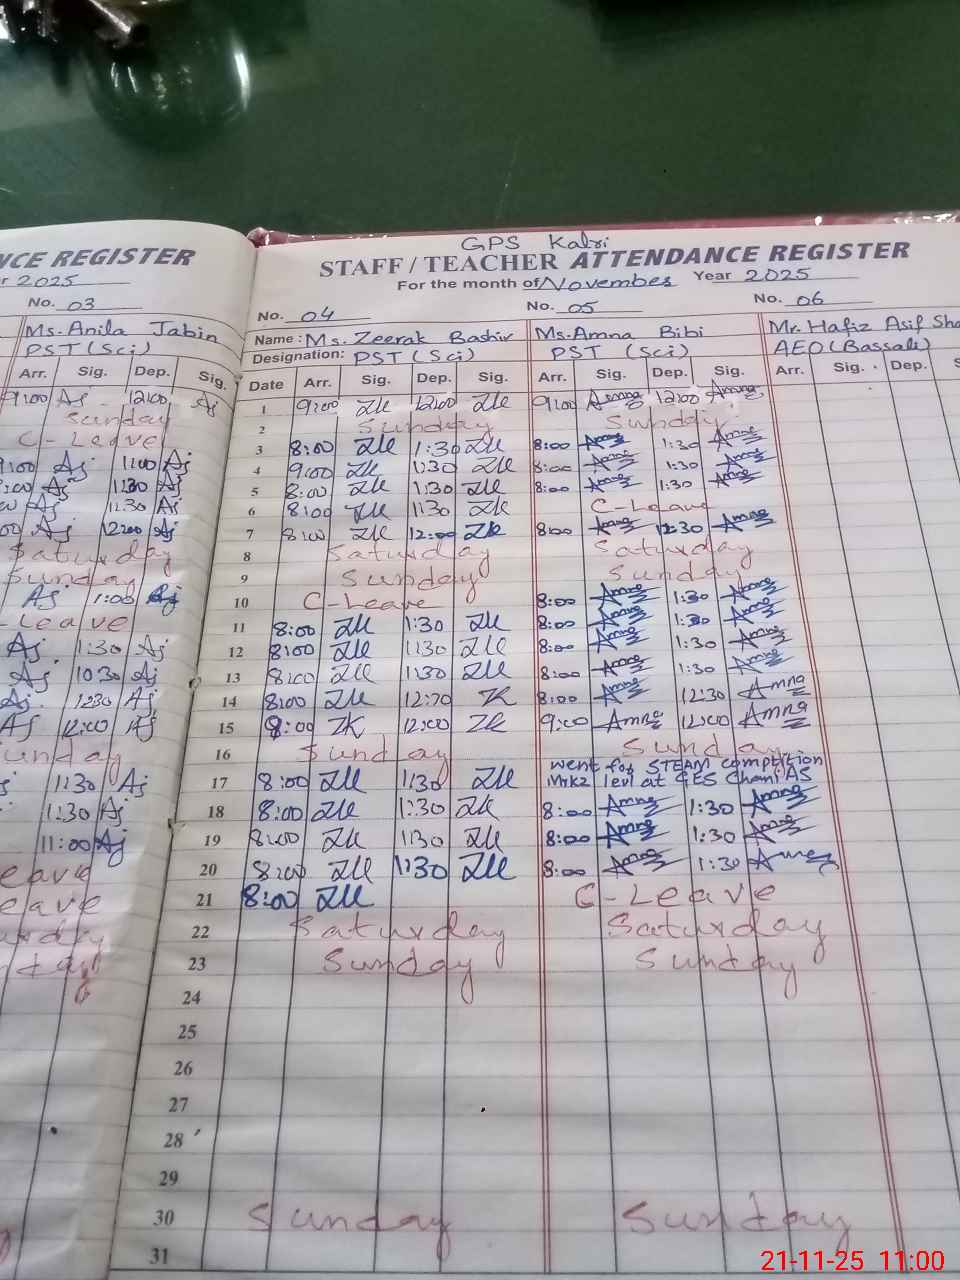 GPS Kalri
NCE REGISTER
STAFF / TEACHER ATTENDANCE REGISTER
r 2025
For the month of November Year 2025
No. 03
No. 04 No. 05 No. 06
Ms. Anila Jabin
Name: Ms. Zeerak Bashir Ms. Amna Bibi Mr. Hafiz Asif Sha
PST (Sci)
Designation: PST (Sci) PST (Sci) AEO (Bassali)
Arr. Sig. Dep. Sig.
Date Arr. Sig. Dep. Sig. Arr. Sig. Dep. Sig. Arr. Sig. Dep. S
9:00 As 12:00 Aj 1 9:00 ZK 12:00 ZK 9:00 Amna 12:00 Amna
Sunday 2 Sunday Sunday
C-Leave 3 8:00 ZK 1:30 ZK 8:00 Amna 1:30 Amna
9:00 Aj Aj 4 9:00 ZK 1:30 ZK 8:00 Amna 1:30 Amna
Aj Aj 5 8:00 ZK 1:30 ZK 8:00 Amna 1:30 Amna
Aj 12:30 Aj 6 8:00 ZK 1:30 ZK C-Leave
Aj 12:00 Aj 7 8:00 ZK 12:00 ZK 8:00 Amna 12:30 Amna
Saturday 8 Saturday Saturday
Sunday 9 Sunday Sunday
Aj 1:00 Aj 10 C-Leave 8:00 Amna 1:30 Amna
Leave 11 8:00 ZK 1:30 ZK 8:00 Amna 1:30 Amna
Aj 1:30 Aj 12 8:00 ZK 1:30 ZK 8:00 Amna 1:30 Amna
Aj 10:30 Aj 13 8:00 ZK 1:30 ZK 8:00 Amna 1:30 Amna
Aj 12:30 Aj 14 8:00 ZK ZK 8:00 Amna 12:30 Amna
Aj 12:00 Aj 15 8:00 ZK 12:00 ZK 9:00 Amna 12:00 Amna
unday 16 Sunday Sunday
1:30 Aj 17 8:00 ZK 1:30 ZK went for STEAM compition
levl at GES Chani AS
1:30 Aj 18 8:00 ZK 1:30 ZK 8:00 Amna 1:30 Amna
11:00 Aj 19 8:00 ZK 1:30 ZK 8:00 Amna 1:30 Amna
eave 20 8:00 ZK 1:30 ZK 8:00 Amna 1:30 Amna
eave 21 8:00 ZK C-Leave
urday 22 Saturday Saturday
nday 23 Sunday Sunday
24
25
26
27
28
29
30 Sunday Sunday
31
21-11-25 11:00